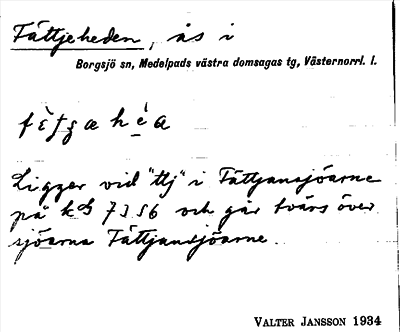 Fättjeheden, ås i
Borgsjö sn, Medelpads västra domsagas tg, Västernorrl. l.
Ligger vid "ttj" i Fättjansjöarne
på kbl 7356 och går tvärs över
sjöarna Fättjansjöarne
VALTER JANSSON 1934